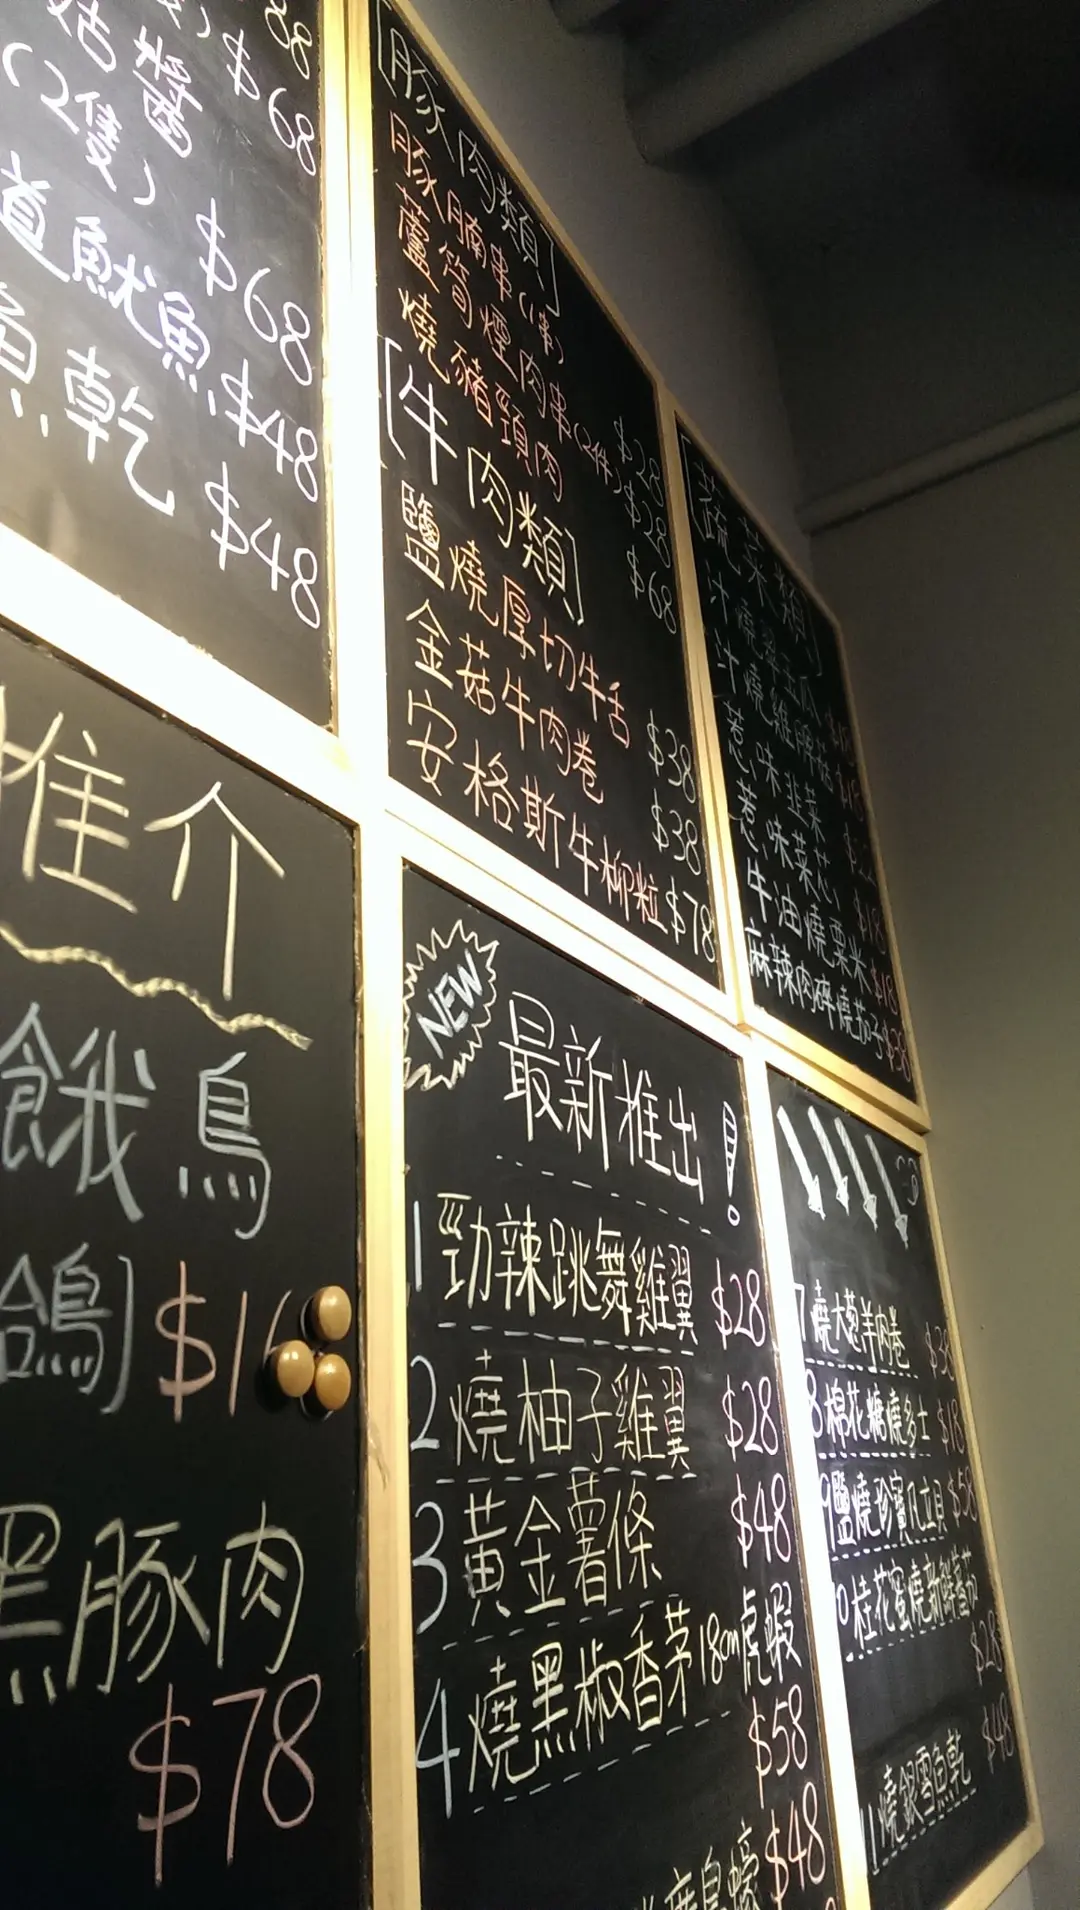 $68
菇醬
(2隻) $68
道魷魚 $48
魚乾 $48
[豚肉類]
豚腩串(1串) $28
蘆筍煙肉串(2件) $28
燒豬頸肉 $68
[牛肉類]
鹽燒厚切牛舌 $38
金菇牛肉卷 $38
安格斯牛柳粒 $78
[蔬菜類]
汁燒翠玉瓜
汁燒雞脾菇
惹味韭菜
惹味菜芯 $18
牛油燒粟米 $18
麻辣肉碎燒茄子 $38
推介
餓鳥
鴿)
黑豚肉
$78
NEW
最新推出!
1 勁辣跳舞雞翼 $28
2 燒柚子雞翼 $28
3 黃金薯條 $48
4 燒黑椒香茅18cm虎蝦
$58
$48
7 燒大蔥羊肉卷 $38
8 棉花糖燒多士 $18
9 鹽燒珍寶 $58
桂花蜜燒新鮮
$28
11 燒銀雪魚乾 $48